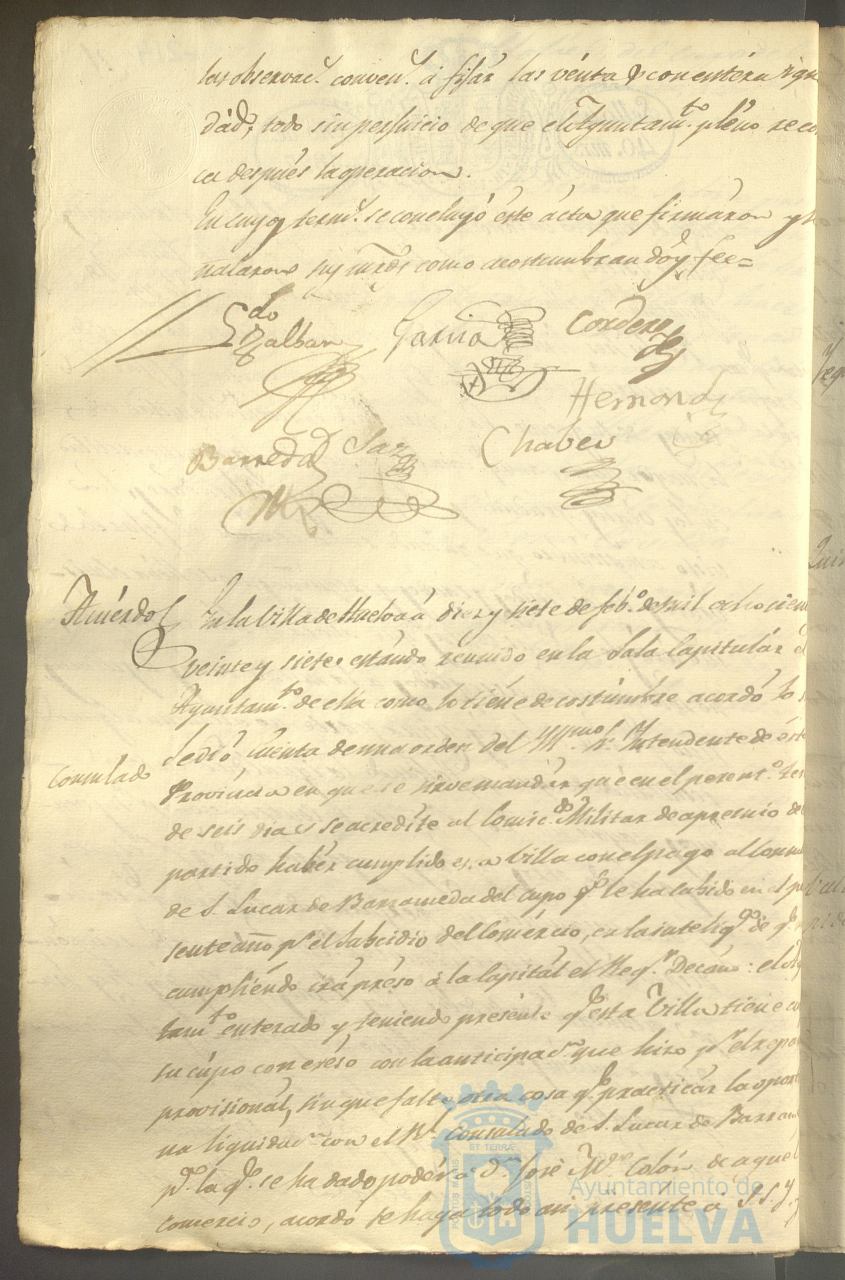 las observac.s conven.s á fijár las vénta con entéra rigu
dád, todo sin perjuicio de que el Ayuntam.to pléno reco
ca después la operacion.
En cuyos term.s se concluyó éste ácta que firmáron y
ñalaron sus mrds como acostumbran doy fee=
Ldo Zalban Garcia Cordero
Hernand
Barreda Saz Chabes
Acuérdo En la Villa de Huelva á diez y siete de feb.o de mil ochocien
veinte y siete estándo reunido en la Sala Capitulár el
Ayuntam.to de ella como lo tiéne de costúmbre acordó lo s
Se dió cuenta de una orden del Yll.mo S.r Yntendente de éste
Consulado Província en que se sirve mandár que en el perent.o ter
de seis dias se acredíte al Comis.do Militar de apremio de
partido habér cumplido esta Villa con el págo al Consu
de S. Lucar de Barrameda del cupo q.e le ha cabido en el pre
sente año p.a el Subcidio del Comércio, en la intelig.a de q.e
cumpliéndo irá préso á la Capitál el Reg.r Decáno: el Ay
tam.to enterado y teniendo presénte q.e esta Villa tiene cu
su cúpo con eséso con la anticipac.n que hizo p.r el repar
provisionál, sin que falte otra cosa q.e practicár la oport
na liquidac.n con el R.l Consulado de S. Lucar de Barram
p.a la q.e se ha dado podér á D.n José M.a Colón de aquél
comercio, acordó se haga todo asi presénte á S.S.Y.
Ayuntamiento de
HUELVA